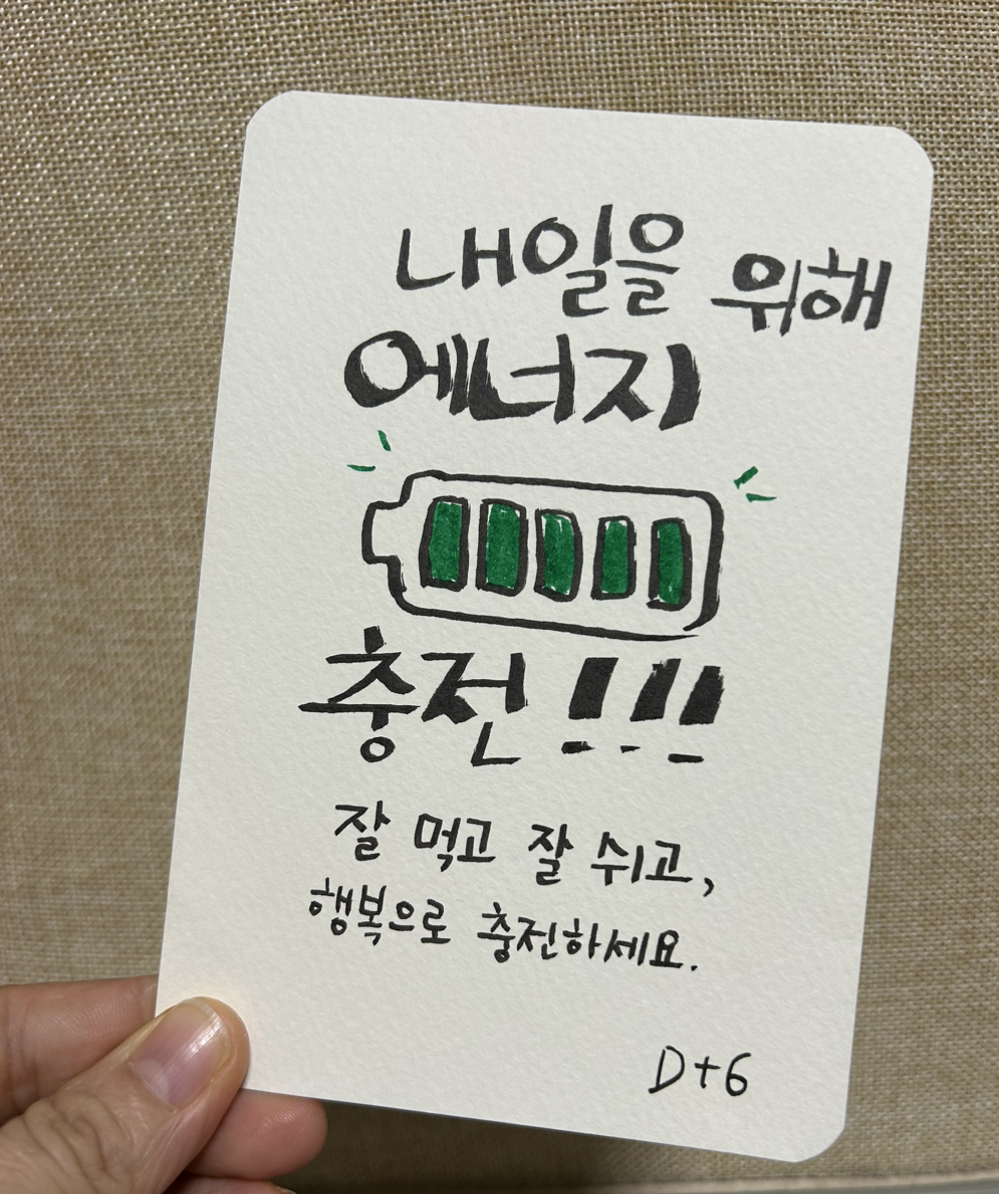 내일을 위해
에너지
충전!!!
잘 먹고 잘 쉬고,
행복으로 충전하세요.
D+6